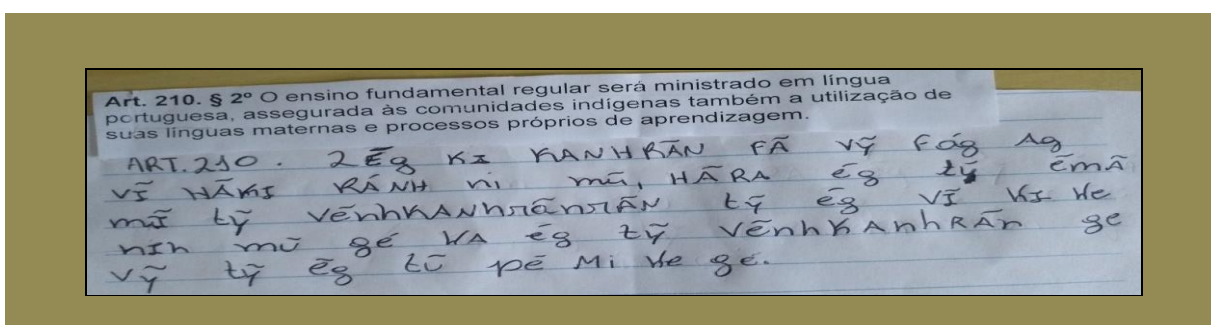 Art. 210. § 2º O ensino fundamental regular será ministrado em língua
portuguesa, assegurada às comunidades indígenas também a utilização de
suas línguas maternas e processos próprios de aprendizagem.
ART. 210. 2 Ẽg KI KANHRÃN FÃ vỹ Fóg Ag
vĩ HÃKI RÁNH ni mũ, HÃRA ẽg tỹ ẽmã
mĩ tỹ vẽnhKANhrãnrÃN tỹ ẽg vĩ KI Ke
nIn mũ gé KA ẽg tỹ vẽnhKAnhRÃn ge
vỹ tỹ ẽg tũ pé Mi Ke gé.